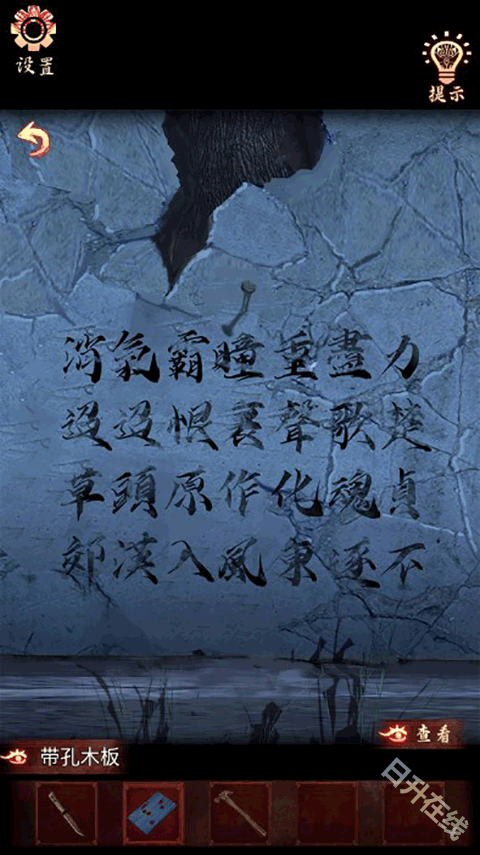 设置
提示
力盡重瞳霸氣消
楚歌聲裏恨迢迢
貞魂化作原頭草
不逐東風入漢郊
查看
带孔木板
日升在线